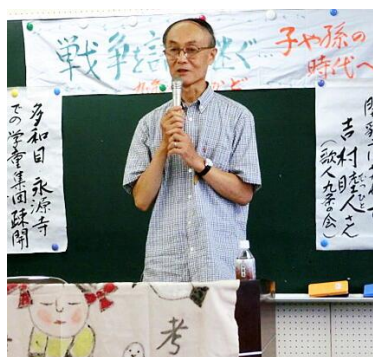 戦争を語 継ぐ
子や孫の
時代へ
多和目 永源寺
での学童集団疎開
吉村睦人さん
（歌人九条の会）
考